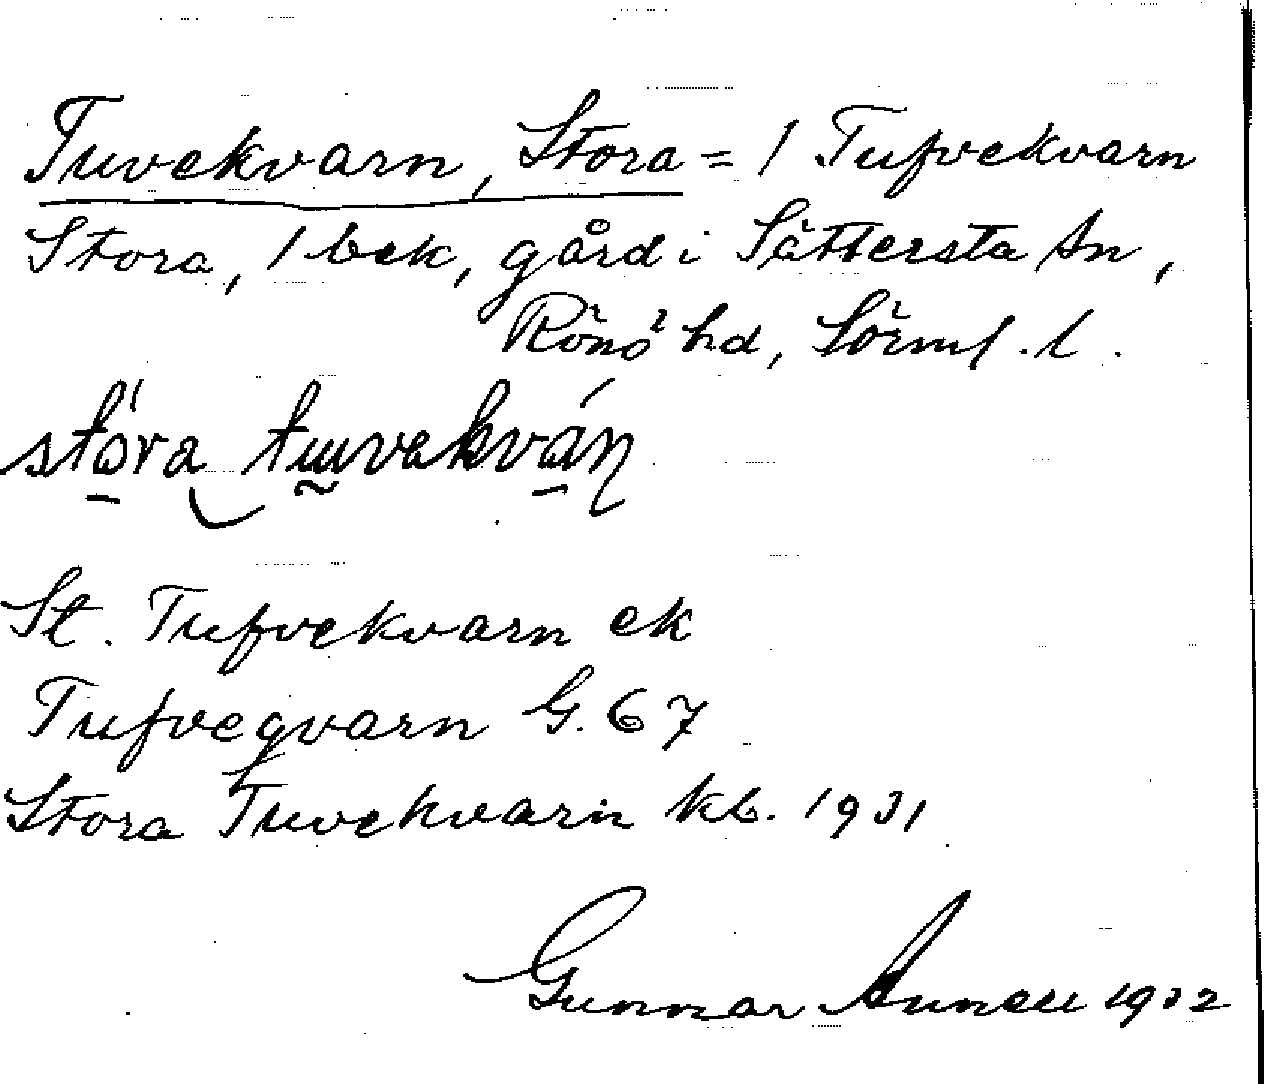 Tuvekvarn, Stora = 1 Tufvekvarn
Stora, 1 bek, gård i Sättersta sn,
Rönö hd, Sörml. l.
stóra
St. Tufvekvarn ek
Tufveqvarn G. 67
Stora Tuvekvarn kb. 1931
Gunnar 1932